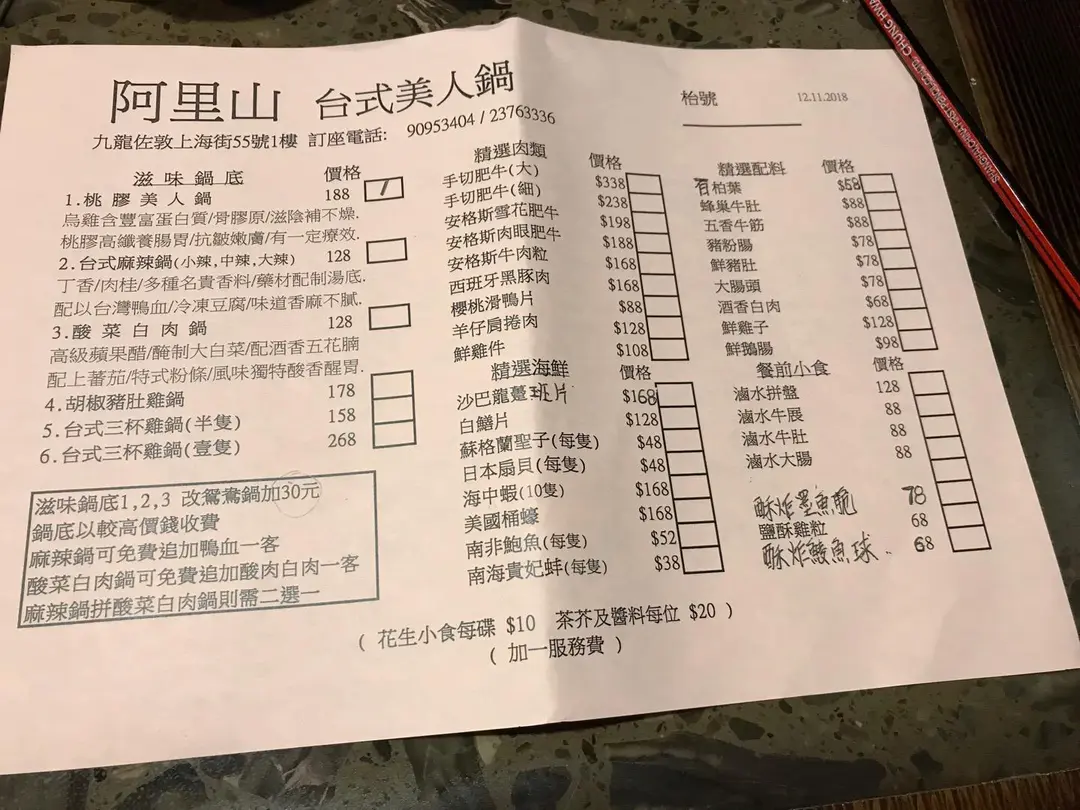 阿里山 台式美人鍋
九龍佐敦上海街55號1樓 訂座電話: 90953404 / 23763336
枱號
12.11.2018
滋味鍋底 價格
1.桃膠美人鍋 188 1
烏雞含豐富蛋白質/骨膠原/滋陰補不燥.
桃膠高纖養腸胃/抗皺嫩膚/有一定療效.
2.台式麻辣鍋(小辣,中辣,大辣) 128
丁香/肉桂/多種名貴香料/藥材配制湯底.
配以台灣鴨血/冷凍豆腐/味道香麻不膩.
3.酸菜白肉鍋 128
高級蘋果醋/醃制大白菜/配酒香五花腩
配上蕃茄/特式粉條/風味獨特酸香醒胃.
4.胡椒豬肚雞鍋 178
5.台式三杯雞鍋(半隻) 158
6.台式三杯雞鍋(壹隻) 268
滋味鍋底1,2,3 改鴛鴦鍋加30元
鍋底以較高價錢收費
麻辣鍋可免費追加鴨血一客
酸菜白肉鍋可免費追加酸肉白肉一客
麻辣鍋拼酸菜白肉鍋則需二選一
精選肉類 價格
手切肥牛(大) $338
手切肥牛(細) $238
安格斯雪花肥牛 $198
安格斯肉眼肥牛 $188
安格斯牛肉粒 $168
西班牙黑豚肉 $168
櫻桃滑鴨片 $88
羊仔肩捲肉 $128
鮮雞件 $108
精選海鮮 價格
沙巴龍躉班片 $168
白鱔片 $128
蘇格蘭聖子(每隻) $48
日本扇貝(每隻) $48
海中蝦(10隻) $168
美國桶蠔 $168
南非鮑魚(每隻) $52
南海貴妃蚌(每隻) $38
精選配料 價格
柏葉 $68
蜂巢牛肚 $88
五香牛筋 $88
豬粉腸 $78
鮮豬肚 $78
大腸頭 $78
酒香白肉 $68
鮮雞子 $128
鮮鵝腸 $98
餐前小食 價格
滷水拼盤 128
滷水牛展 88
滷水牛肚 88
滷水大腸 88
酥炸墨魚脆 78
鹽酥雞粒 68
酥炸鯪魚球. 68
( 花生小食每碟 $10 茶芥及醬料每位 $20 )
( 加一服務費 )